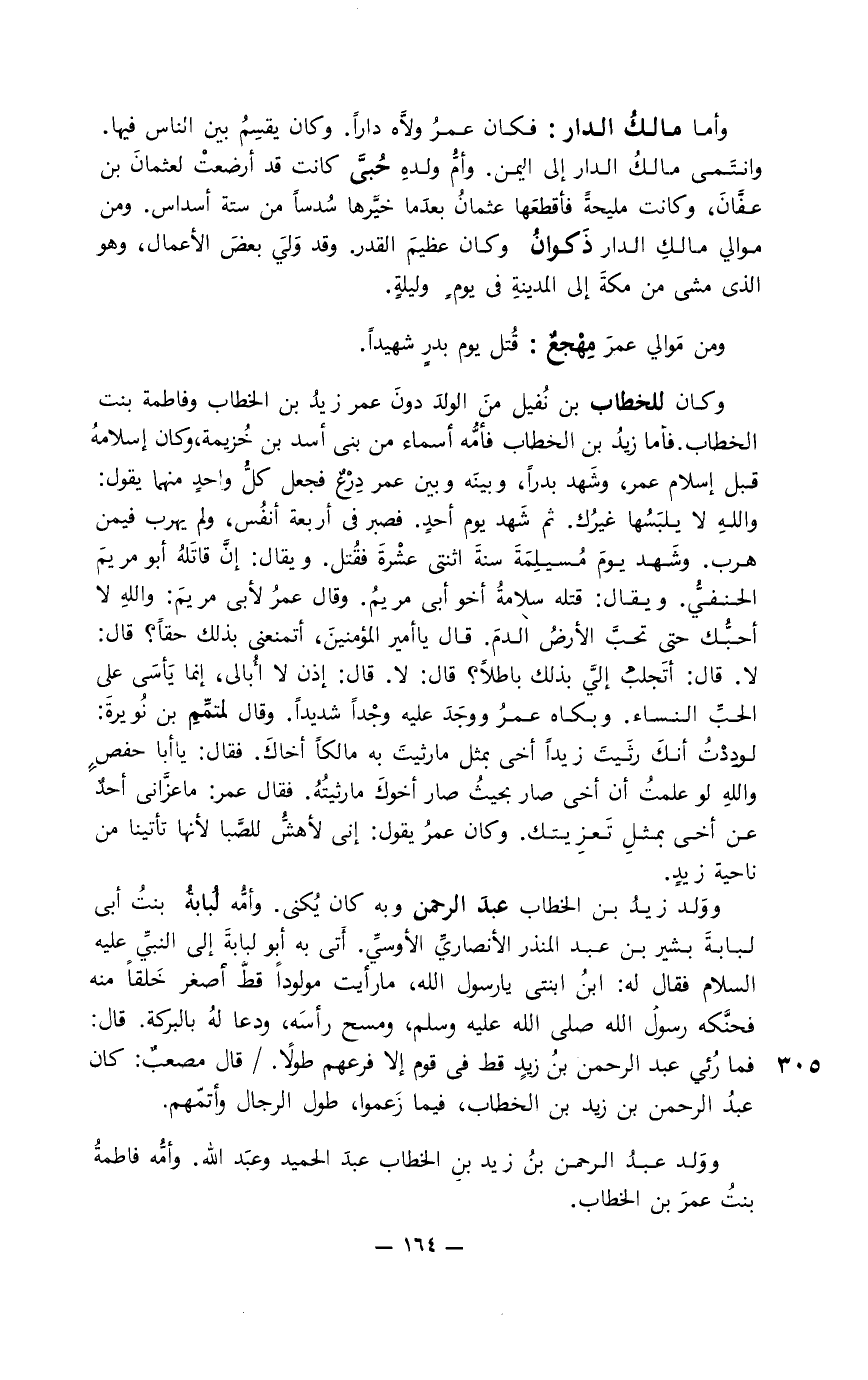 وأما مالكُ الدار : فكان عمرُ ولاَّه داراً. وكان يقسِمُ بين الناس فيها.
وانتَمى مالكُ الدار إلى اليمن. وأمُّ ولدهِ حُبىَّ كانت قد أرضعتْ لعثمانَ بن
عفَّانَ، وكانت مليحةً فأقطعَها عثمانُ بعدَما خيَّرها سُدساً من ستة أسداس. ومن
موالي مالكِ الدار ذَكوانُ وكان عظيمَ القدر. وقد وَليَ بعضَ الأعمال، وهو
الذى مشى من مكةَ إلى المدينةِ فى يومٍ وليلةٍ.
ومن مَوالي عمرَ مِهْجعٌ : قُتل يوم بدرٍ شهيداً.
وكان للخطاب بن نُفيل منَ الولد دونَ عمر زيدُ بن الخطاب وفاطمة بنت
الخطاب. فأما زيدُ بن الخطاب فأمُّه أسماء من بنى أسد بن خُزيمة، وكان إسلامهُ
قبل إسلام عمر، وشَهد بدراً، وبينَه وبين عمر دِرْعٌ فجعل كلُّ واحدٍ منهما يقول:
واللهِ لا يلبَسُها غيرُك. ثم شَهد يوم أحدٍ. فصبر فى أربعة أنفُس، ولم يهرب فيمن
هرب. وشَهد يومَ مُسيلِمَةَ سنةَ اثنتى عشْرةَ فقُتل. ويقال: إنَّ قاتلَهُ أبو مريمَ
الحنفيُّ. ويقال: قتله سلامةُ أخو أبى مريمُ. وقال عمرُ لأبى مريمَ: واللهِ لا
أحبُّك حتى تحبَّ الأرضُ الدمَ. قال ياأمير المؤمنينَ، أتمنعنى بذلك حقاً؟ قال:
لا. قال: أتَجلبُ إليَّ بذلك باطلاً؟ قال: لا. قال: إذن لا أُبالى، إنما يَأسَى على
الحبِّ النساء. وبكاه عمرُ ووجَدَ عليه وجْداً شديداً. وقال لمتمِّم بن نُويرةَ:
لوددْتُ أنكَ رثَيتَ زيداً أخى بمثل مارثيتَ به مالكاً أخاكَ. فقال: ياأبا حفصٍ
واللهِ لو علمتُ أن أخى صار بحيثُ صار أخوكَ مارثيتُهُ. فقال عمر: ماعزَّانى أحدٌ
عن أخى بمثلِ تَعزيتك. وكان عمرُ يقول: إنى لأهشُّ للصَّبا لأنها تأتينا من
ناحية زيدٍ.
ووَلد زيدُ بن الخطاب عبدَ الرحمن وبه كان يُكنى. وأمُّه لُبابةُ بنتُ أبى
لبابةَ بشير بن عبد المنذر الأنصاريِّ الأوسيِّ. أَتى به أبو لبابةَ إلى النبيِّ عليه
السلام فقال له: ابنُ ابنتى يارسول الله، مارأيت مولوداً قطّ أصغر خَلقاً منه
فحنَّكه رسولُ الله صلى الله عليه وسلم، ومسح رأسَه، ودعا لهُ بالبركة. قال:
فما رُئي عبد الرحمن بنُ زيدٍ قط فى قوم إلا فرعهم طولًا. / قال مصعبٌ: كان ٣٠٥
عبدُ الرحمن بن زيد بن الخطاب، فيما زَعموا، طول الرجال وأتمّهم.
ووَلد عبدُ الرحمن بنُ زيد بنِ الخطاب عبدَ الحميد وعبَد الله. وأمُّه فاطمةُ
بنتُ عمرَ بن الخطاب.
— ١٦٤ —